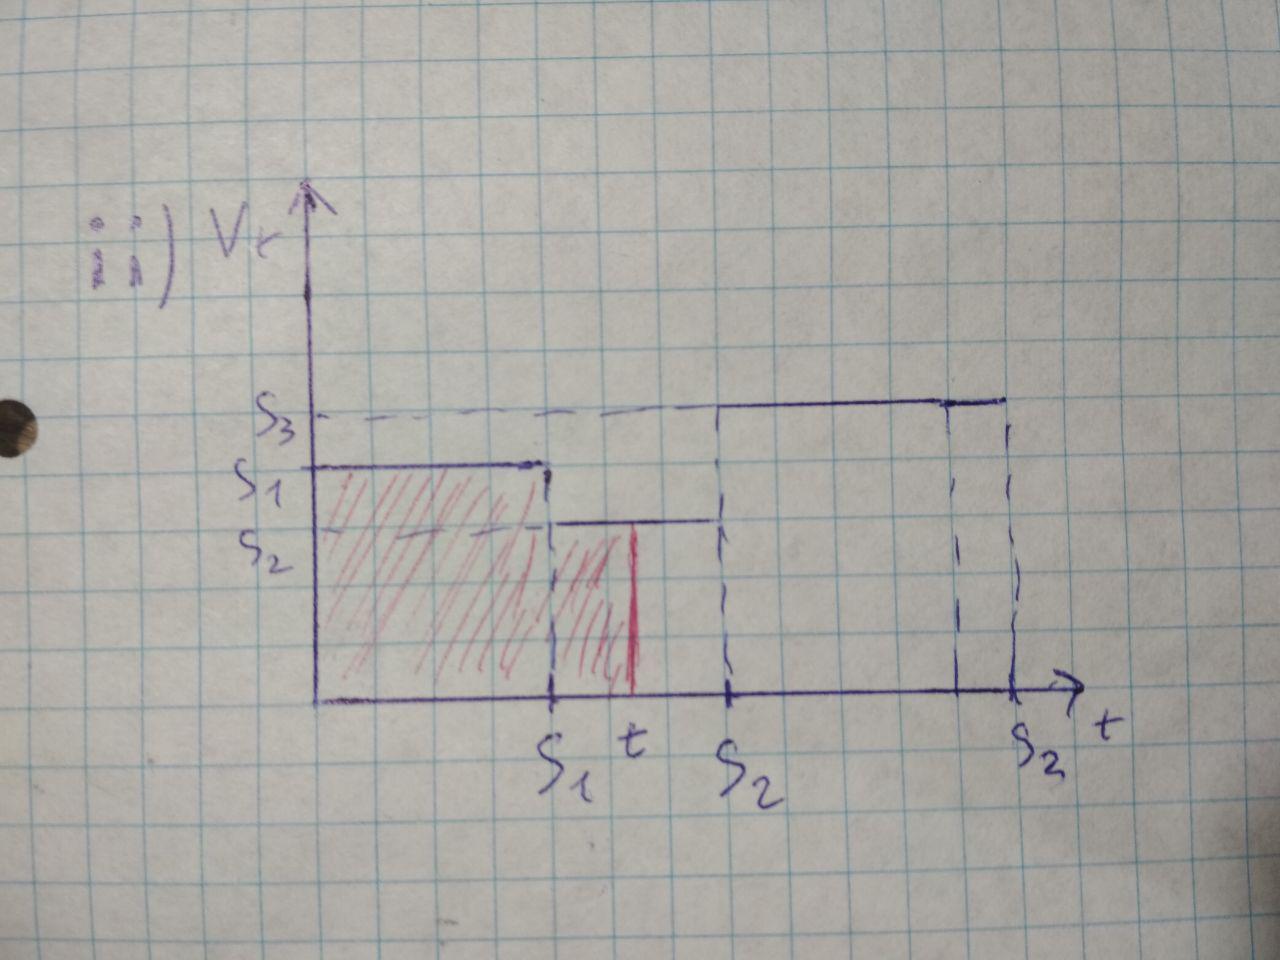 ii) Vt
S3
S1
S2
S1 t S2 S2 t